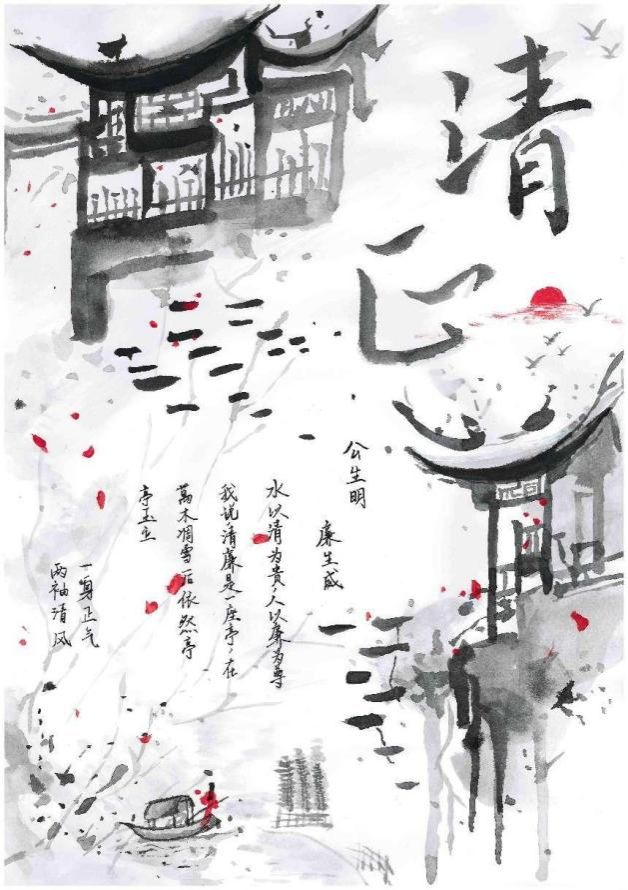 清
正
公生明
廉生威
水以清为贵，人以廉为尊
我说清廉是一座亭，在
萬木凋雪后依然亭
亭玉立
一身正气
两袖清风